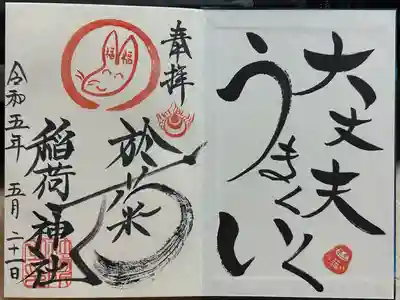 大丈夫
うまくいく
奉拝
福 福
於菊
稲荷神社
令和五年 五月二十日